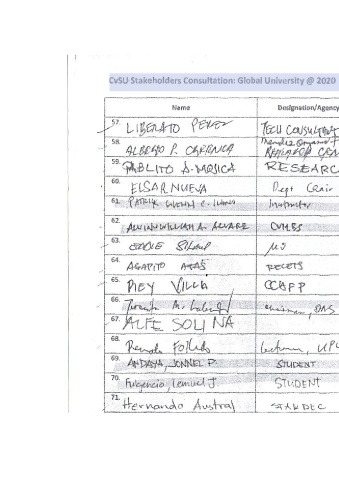 CvSU Stakeholders Consultation: Global University @ 2020
Name Designation/Agency
57. LIBERATO PEREZ TECH CONSULTANT
58. ALBERTO P.
59. PABLITO A. MOJICA RESEARC
60. ELSAR NUEVA Dept Chair
61. Instructor
62. ALVIN WILLIAM A. ALVAREZ CVMBS
63. EDDIE
64. AGAPITO ATAS RECETS
65. REY VILLA CCAFP
66. chairman, DAS
67. ALFE SOLINA
68. Lecturer, UPL
69. ANDAYA, JONNEL P. STUDENT
70. Fulgencio, Lemuel J STUDENT
71. Hernando Austral STANDEC